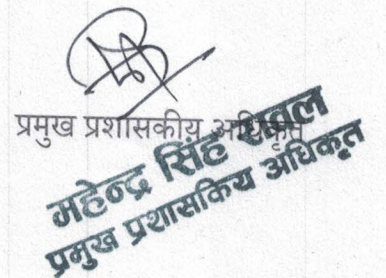 प्रमुख प्रशासकीय अधिकृत
महेन्द्र सिंह रावल
प्रमुख प्रशासकिय अधिकृत